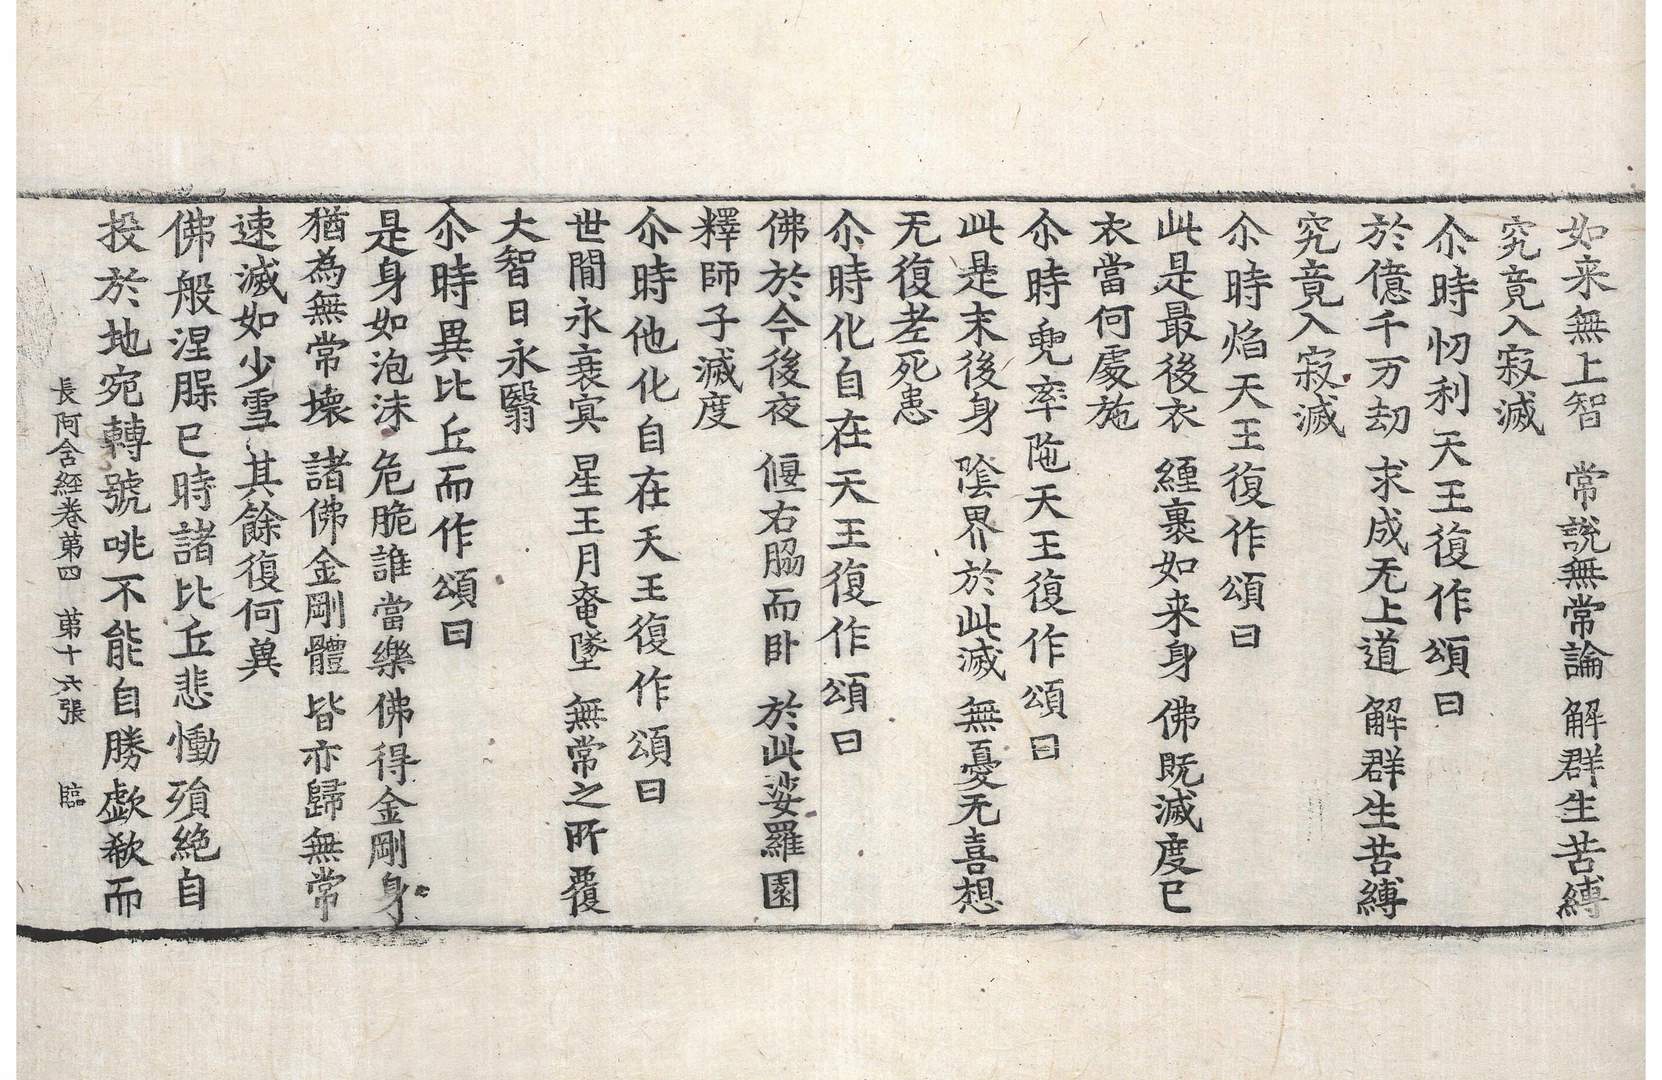 如来無上智　常說無常論　解群生苦縛
究竟入寂滅
尒時忉利天王復作頌曰
於億千万劫　求成无上道　解群生苦縛
究竟入寂滅
尒時焰天王復作頌曰
此是最後衣　纏裹如来身　佛既滅度已
衣當何處施
尒時兜率陁天王復作頌曰
此是末後身　陰界於此滅　無憂无喜想
无復老死患
尒時化自在天王復作頌曰
佛於今後夜　偃右脇而卧　於此娑羅園
釋師子滅度
尒時他化自在天王復作頌曰
世間永衰冥　星王月奄墜　無常之所覆
大智日永翳
尒時異比丘而作頌曰
是身如泡沫　危脆誰當樂　佛得金剛身
猶為無常壞　諸佛金剛體　皆亦歸無常
速滅如少雪　其餘復何兾
佛般涅槃已時諸比丘悲慟殞絕自
投於地宛轉號咷不能自勝歔欷而
長阿含經卷第四　第十六張　臨